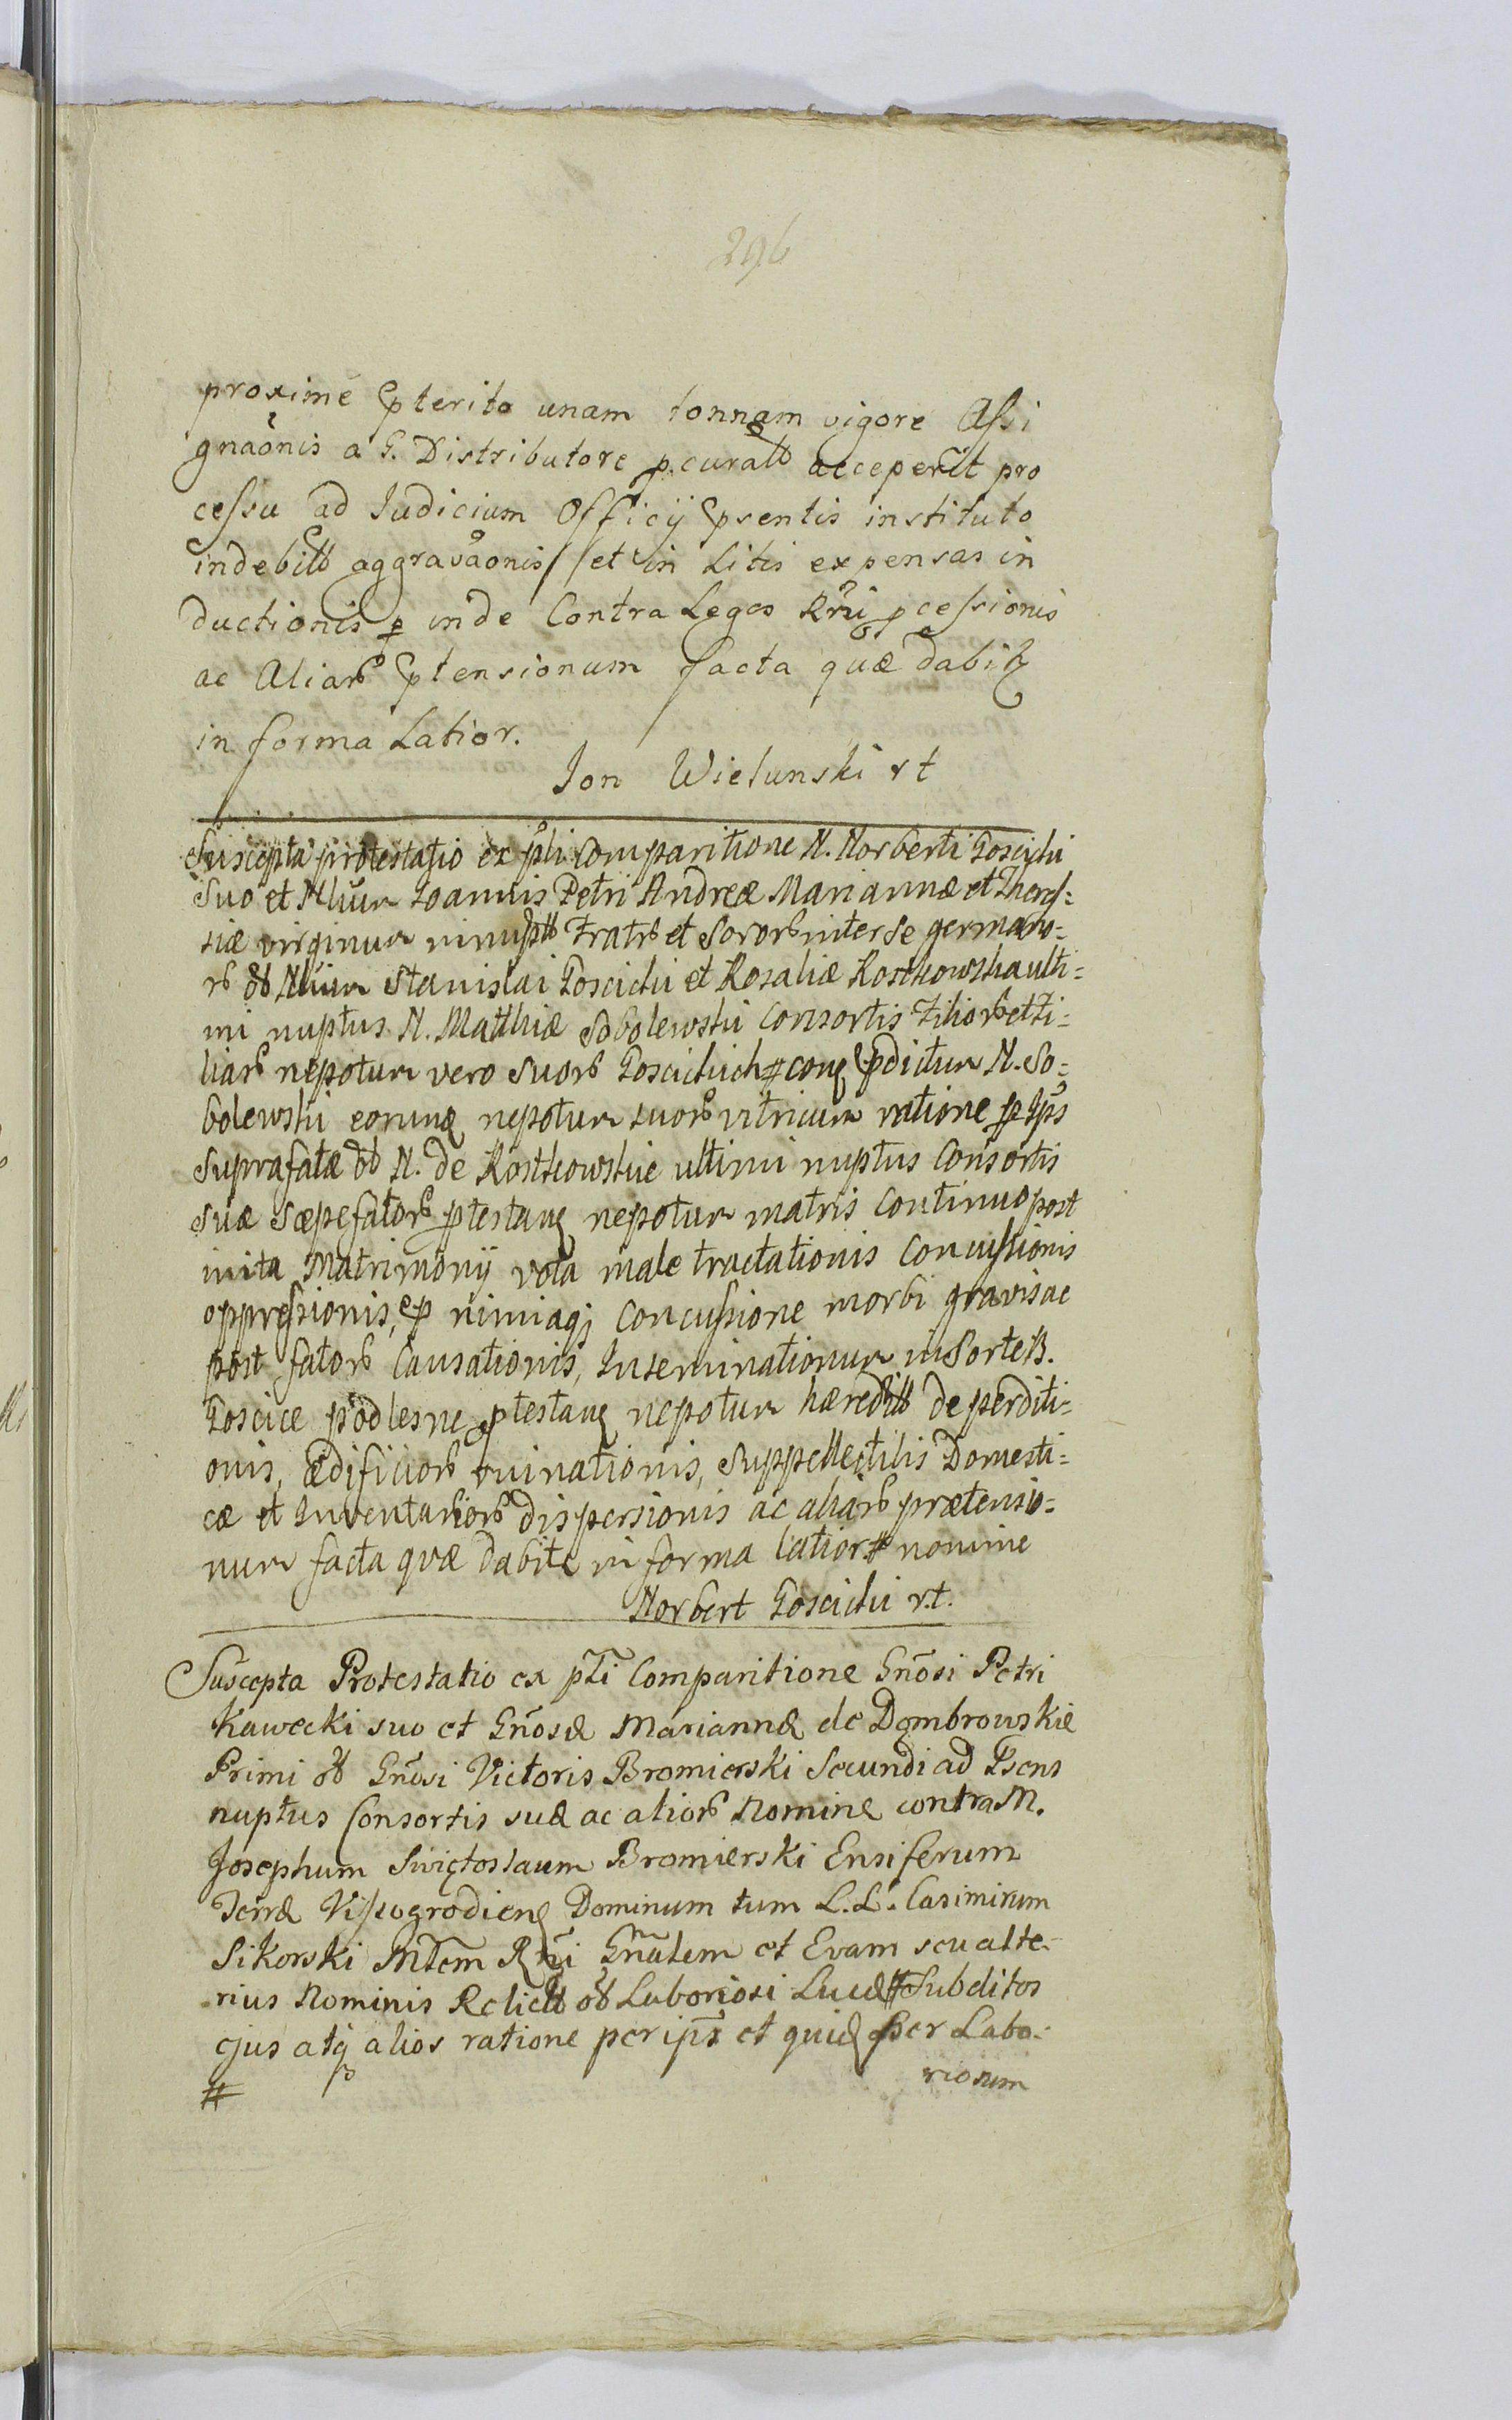 296
proximé pterito unam tonnam vigore Assi
gnaonis a G. Distributore p. curato acceperit pro
cessu ad Iudicium Officij psentis instituto
indebito aggravaonis et in Litis expensas in
ductionis p inde Contra Leges Rni pcessionis
ac Aliar ptensionum facta quæ dabit
in forma Latior.
Jon Wielunski rt
Suscepta protestatio ex pti Comparitione N. Norberti Goscicki
Suo et Nlium Joannis Petri Andreæ Mariannæ et Theres=
siæ virginum Fratr et Soror inter se germano=
r ob Nlium Stanislai Goscicki et Rosaliæ Rostkowska ulti=
mi nuptus N. Matthiæ Sobolewski Consortis Filior et Fi=
liar nepotum vero suor Goscickich # conq pdictum N. So=
bolewski eorunq nepotum suor vitricum ratione p ips
Suprafatæ ob N. de Rostkowskie ultimi nuptus Consortis
suæ sæpefator ptestanq nepotum matris continuo post
inita Matrimonij vota male tractationis Concussionis
oppressionis, ep nimiaq; Concussione morbi gravis ac
post fator Causationis, Inseminationum in Sorte B.
Goscice podlesne ptestanq nepotum hæredit deperditi=
onis, Ædificior ruinationis, Suppellectilis Domesti=
cæ et Inventarior dispersionis ac aliar prætensio=
num facta quæ dabite in forma latior # nomine
Norbert Goscicki r.t.
Suscepta Protestatio ex pti Comparitione Gnosi Petri
Kawecki suo et Gnosæ Mariannæ de Dąmbrowskie
Primi ob Gnosi Victoris Bromierski Secundi ad Psens
nuptus Consortis suæ ac alior Nomine contra M.
Josephum Swiętoslaum Bromierski Ensiferum
Terræ Vissogrodienq Dominum tum L.L. Casimirum
Sikorski Mtem Rni Gnalem et Evam seu alte-
rius Nominis Relict ob Laboriosi Lucæ # Subditos
ejus atq alios ratione per ips et quidq per Labo-
riosum
#